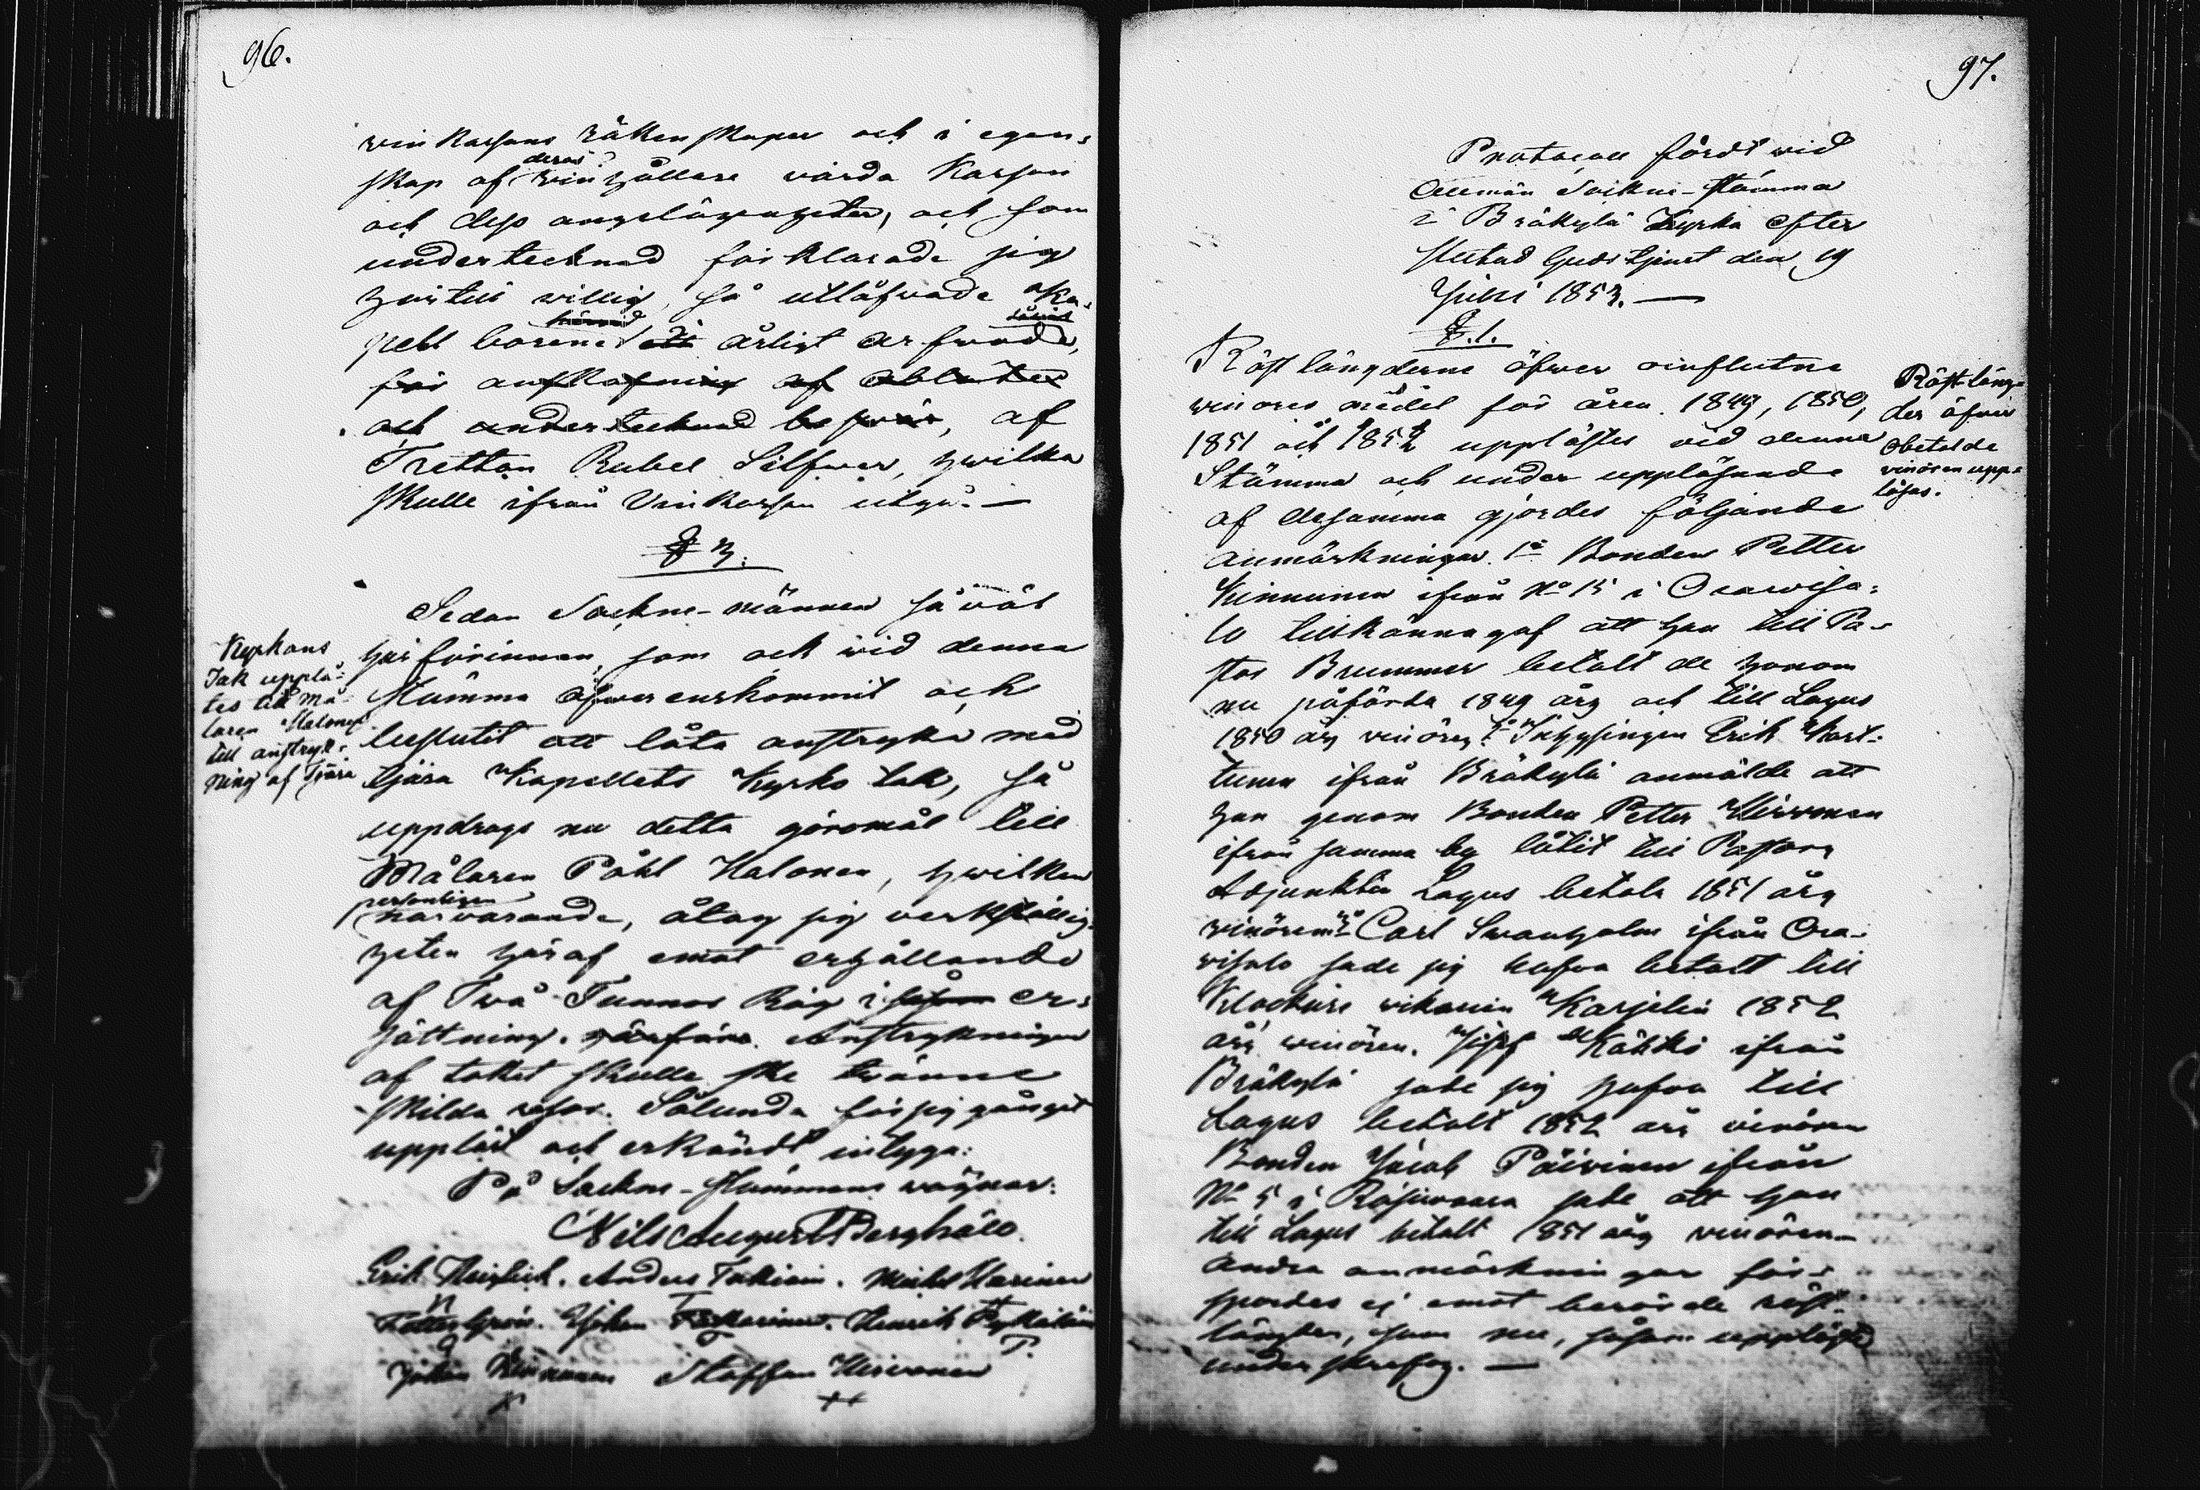 96.
vin Kassans räkenskaper och i egen-
skap af deras vinhållare vårda Kassan
och dess angelägenheter, och som
undertecknad förklarade sig
härtill willig, så utläfwade Ka-
pell boerne härvid ett årligt arfwode,
för anskafning af oblater
och undertecknad beswär, af
Tretton Rubel Silfwer, hwilka
skulle ifrån Vinkassan utgå. —
§ 3.
Sedan Sockne-männen så väl
härförinnan, som ock wid denna
Stämma öfwerenskommit och
beslutit att låta anstryka med
tjära Kapellets Kyrko tak, så
uppdrogs nu detta göromål till
Målaren Påhl Halonen, hwilken
personligen närvarande, åtog sig verkställig-
heten häraf emot erhållande
af Två Tunnor Råg i såsom er-
sättning. härföre. Anstrykningen
af taket skulle ske tvänne
skilda resor. Sålunda för sig gånget
uppläst och erkändt intyga:
På Sockne-Stämmans wägnar:
Nils August Berghäll
Erik Anders Tukiain. Michel Karinen
Petter Grön. Johan Henrik
Johan Kinnunen Staffan Hirvonen
Kyrkans
Tak upplå-
tes till Må-
laren Halonen
till anstryk-
ning af Tjära
97.
Protocoll fördt wid
Allmän Sockne-Stämma
i Bräkylä Kyrka efter
slutad Gudstjenst den 19
Juni 1853. —
§.1.
Röstlängderne öfwer oinflutne
winöres medel för åren 1849, 1850,
1851 och 1852 upplästes vid denna
Stämma och under uppläsande
af desamma gjordes följande
anmärkningar. 1o Bonden Petter
Kinnunen ifrån No 15 i Oravisa-
lo tillkännagaf att han till Pa-
stor Brummer betalt de honom
nu påförda 1849 års och till Lagus
1850 års vinören, 2o Inhysingen Erik Kart-
tunen ifrån Bräkylä anmälde att
han genom Bonden Petter Hirvonen
ifrån samma by låtit till Pastors
Adjunkten Lagus betala 1851 års
winören 3o Carl Swanholm ifrån Ora-
visalo sade sig hafva betalt till
Klockare vikarien Karjelin 1852
års winören. Josef Kähkö ifrån
Bräkylä sade sig hafva till
Lagus betalt 1852 års vinören
Bonden Jacob Päivinen ifrån
No 5 i Rasivaara sade att han
till Lagus betalt 1851 års vinören
andra anmärkningar för-
spordes ej emot berörde röst-
längder, som nu, såsom upplästa
underskrefos. —
Röstläng-
der öfver
obetalde
vinören upp-
läses.